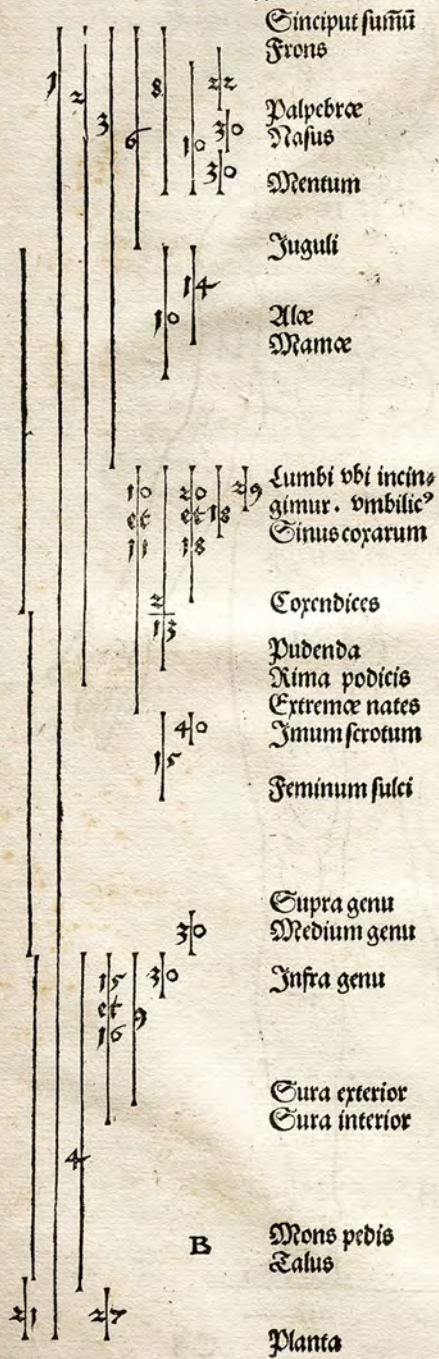 Sinciput sum̄ū
Frons
Palpebræ
Nasus
Mentum
Juguli
Alæ
Mamæ
Lumbi vbi incin⸗
gimur. vmbilicꝰ
Sinus coxarum
Coxendices
Pudenda
Rima podicis
Extremæ nates
Imum scrotum
Feminum sulci
Supra genu
Medium genu
Infra genu
Sura exterior
Sura interior
Mons pedis
Talus
Planta
1
2
3
6
8
10
22
30
30
10
14
10
et
11
2
13
20
et
18
18
29
15
40
30
4
15
et
16
9
30
B
21
27